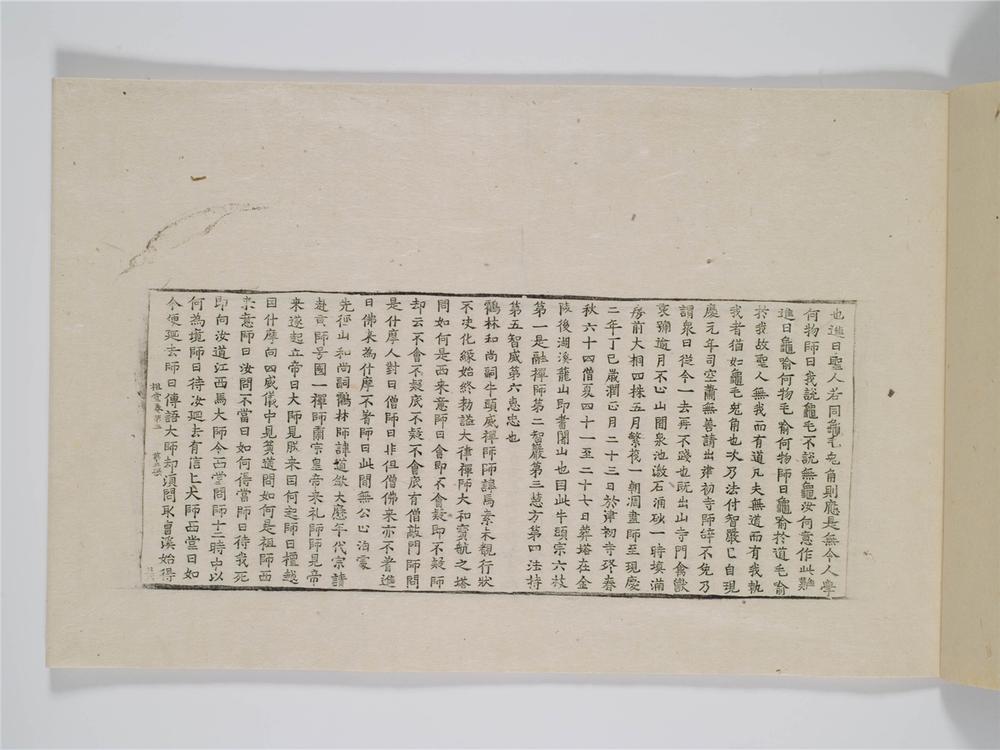 也進曰聖人若同龜毛兎角則應是無令人學
何物師曰我說龜毛不說無龜汝何意作此難
進曰龜喻何物毛喻何物師曰龜喻於道毛喻
於我故聖人無我而有道凡夫無道而有我執
我者猶如龜毛兎角也次乃法付智嚴已自現
慶元年司空蕭無善請出建初寺師辞不免乃
謂衆曰從今一去再不踐也既出山寺門禽獸
哀號逾月不心山間泉池激石涌砂一時填滿
房前大桐四株五月繁茂一朝凋盡師至現慶
二年丁巳歲潤正月二十三日於津初寺终春
秋六十四僧夏四十一至二十七日葬塔在金
陵後湖溪籠山即耆闍山也曰此牛頭宗六枝
第一是融禪師第二智嚴第三慧方第四法持
第五智威第六惠忠也
鶴林和尚詞牛頭威禪師師諱馬素未覩行狀
不决化緣始終勑謚大律禪師大和寳航之塔
問如何是西来意師曰會即不會疑即不疑師
却云不會不疑底不疑不會底有僧敲門師問
是什摩人對曰僧師曰非但僧佛来亦不着進
曰佛来為什摩不着師曰此間無公心泊處
先徑山和尚詞鶴林師諱道欽大曆年代宗請
赴京師号國一禪師肅宗皇帝来礼師師見帝
来遂起立帝曰大師見朕来因何起師曰檀越
因什摩向四威儀中見貧道問如何是祖師西
来意師曰汝問不當曰如何得當師曰待我死
即向汝道江西馬大師令西堂問師十二時中以
何為境師曰待汝廻去有信上大師西堂曰如
今便廻去師曰傳語大師却須問取曺溪始得
祖堂卷第三 第五張